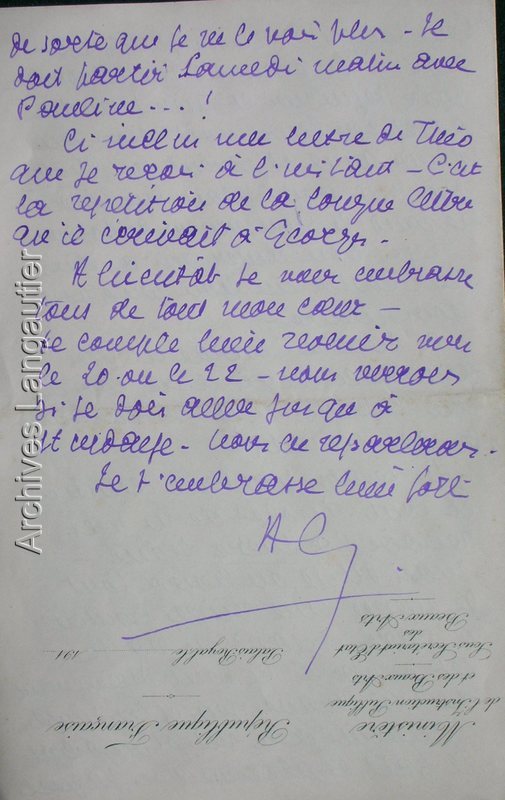 de sorte que je ne le vois plus - Je
dois partir Samedi matin avec
Pauline...!
Ci inclus une lettre de Théo
que je reçois à l'instant - C'est
la répétition de la longue lettre
qu'il écrivait à Georges.
A bientôt je vous embrasse
tous de tout mon cœur -
Je compte bien revenir
le 20 ou le 22 - nous verrons
si je dois aller jusqu'à
nous en reparlerons.
Je t'embrasse bien fort
AL
Archives Langautier
République Française
Ministère
de l'Instruction Publique
et des Beaux-Arts
Sous Secrétariat d'Etat
des
Beaux-Arts
Palais-Royal, le 191